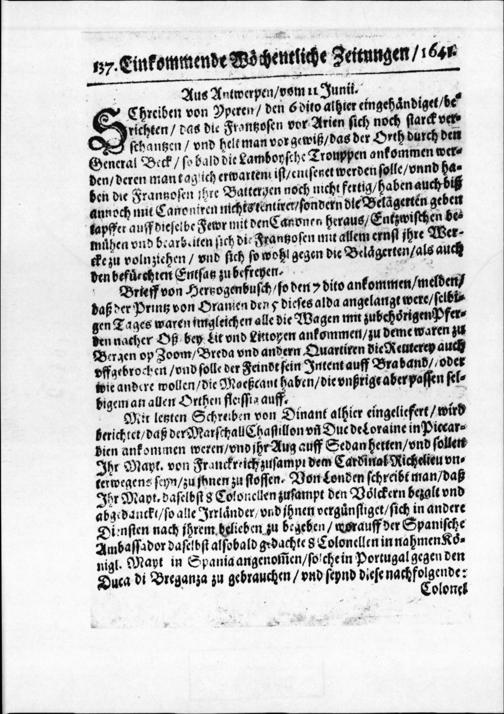 137. Einkommende Wöchentliche Zeitungen / 1641.
Aus Antwerpen / vom 11 Junii.
SChreiben von Yperen / den 6 dito alhier eingehändiget / be-
richten / das die Frantzosen vor Arien sich noch starck ver-
schantzen / vnd helt man vor gewiß / das der Orth durch den
General Beck / so bald die Lamboysche Trouppen ankommen wer-
den / deren man täglich erwarten ist / entsenet werden solle / vnnd ha-
ben die Frantzosen jhre Batteryen noch nicht fertig / haben auch biß
annoch mit Canoniren nichts tentiret / sondern die Belägerten geben
tapffer auff dieselbe Fewr mit den Canonen heraus / Entzwischen be-
mühen vnd bearbeiten sich die Frantzosen mit allem ernst jhre Wer-
cke zu volnziehen / vnd sich so wohl gegen die Belägerten / als auch
den befürchten Entsatz zu befreyen.
Brieff von Hertzogenbusch / so den 7 dito ankommen / melden /
daß der Printz von Oranien den 5 dieses alda angelangt were / selbi-
gen Tages waren imgleichen alle die Wagen mit zubehörigen Pfer-
den nacher Oß / bey Lit vnd Littoyen ankommen / zu deme waren zu
Bergen op Zoom / Breda vnd andern Quartiren die Reuterey auch
vffgebrochen / vnd solle der Feindt sein Intent auff Braband / oder
wie andere wollen / die Maeßcant haben / die vnßrige aber passen sel-
bigem an allen Orthen fleissig auff.
Mit letzten Schreiben von Dinant alhier eingeliefert / wird
berichtet / daß der Marschall Chastillon vñ Duc de Loraine in Piccar-
dien ankommen weren / vnd jhr Aug auff Sedan hetten / vnd sollen
Ihr Mayt. von Franckreich zusampt dem Cardinal Richelieu vn-
terwegens seyn / zu jhnen zu stossen. Von Londen schreibt man / daß
Ihr Mayt. daselbst 8 Colonellen zusampt den Völckern bezalt vnd
abgedanckt / so alle Irrländer / vnd jhnen vergünstiget / sich in andere
Diensten nach jhrem belieben zu begeben / worauff der Spanische
Ambassador daselbst alsobald gedachte 8 Colonellen in nahmen Kö-
nigl. Mayt in Spania angenom̃en / solche in Portugal gegen den
Duca di Breganza zu gebrauchen / vnd seynd diese nachfolgende:
Colonel